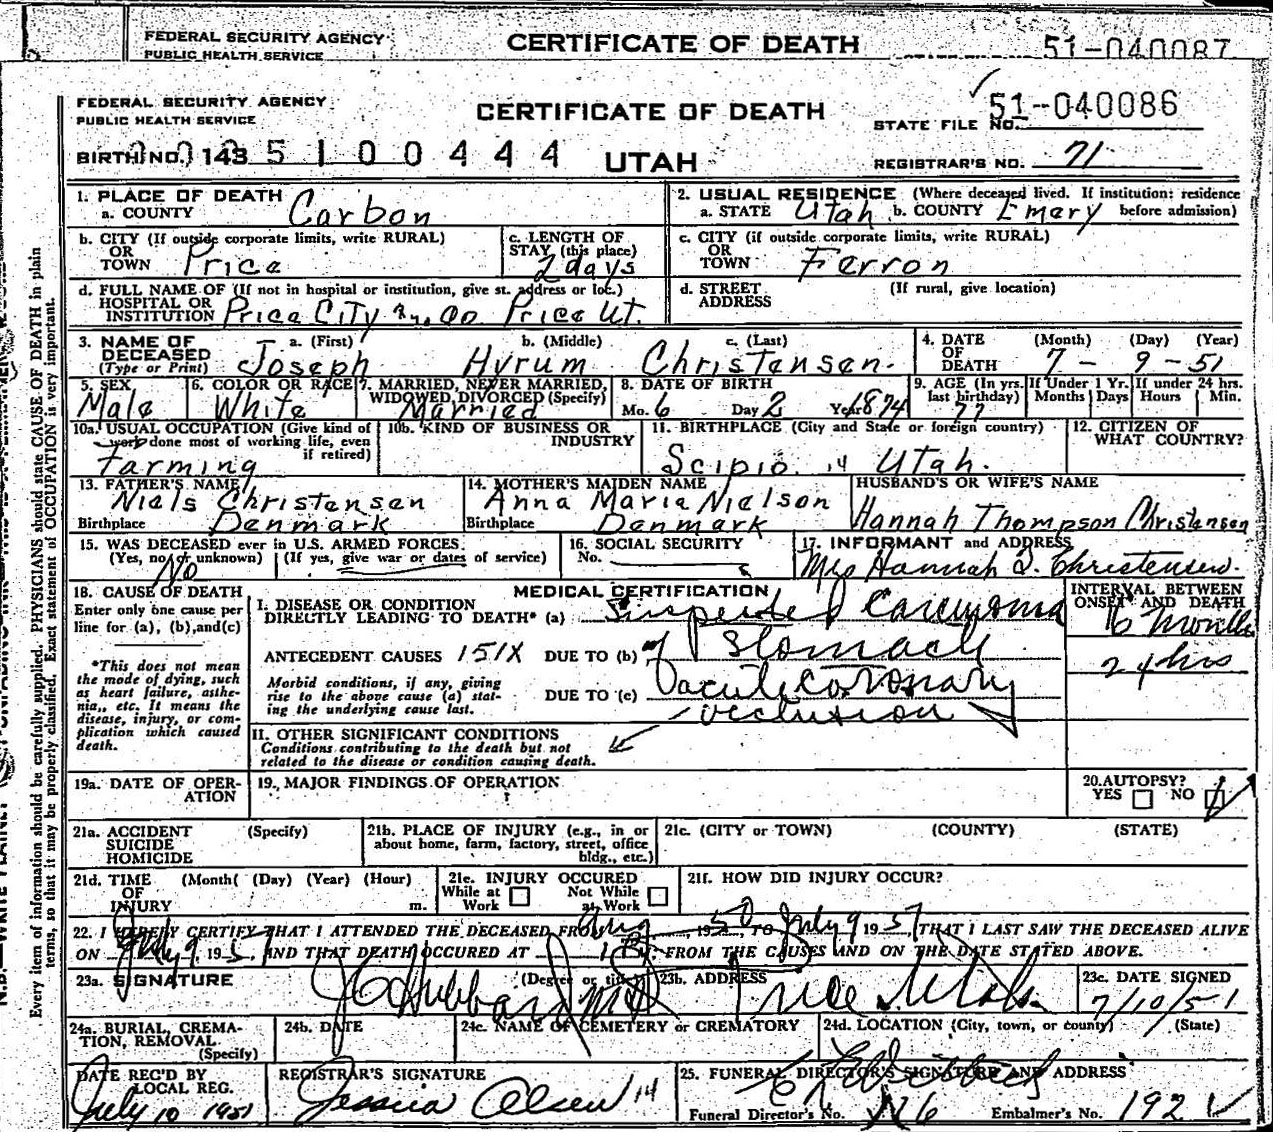 FEDERAL SECURITY AGENCY
PUBLIC HEALTH SERVICE
CERTIFICATE OF DEATH
51-040087
FEDERAL SECURITY AGENCY
PUBLIC HEALTH SERVICE
CERTIFICATE OF DEATH
STATE FILE NO. 51-040086
BIRTH NO. 143 5100444
UTAH
REGISTRAR'S NO. 71
1. PLACE OF DEATH
a. COUNTY Carbon
2. USUAL RESIDENCE (Where deceased lived. If institution: residence
a. STATE Utah b. COUNTY Emery before admission)
b. CITY (If outside corporate limits, write RURAL)
OR
TOWN Price
c. LENGTH OF
STAY (this place)
2 days
c. CITY (if outside corporate limits, write RURAL)
OR
TOWN Ferron
d. FULL NAME OF (If not in hospital or institution, give st. address or lot.)
HOSPITAL OR
INSTITUTION Price City Price Ut.
d. STREET (If rural, give location)
ADDRESS
3. NAME OF a. (First) b. (Middle) c. (Last)
DECEASED
(Type or Print) Joseph Hyrum Christensen.
4. DATE (Month) (Day) (Year)
OF
DEATH 7 - 9 - 51
5. SEX
Male
6. COLOR OR RACE
White
7. MARRIED, NEVER MARRIED,
WIDOWED, DIVORCED (Specify)
Married
8. DATE OF BIRTH
Mo. 6 Day 2 Year 1874
9. AGE (In yrs.
last birthday)
77
If Under 1 Yr.
Months Days
If under 24 hrs.
Hours Min.
10a. USUAL OCCUPATION (Give kind of
work done most of working life, even
if retired)
Farming
10b. KIND OF BUSINESS OR
INDUSTRY
11. BIRTHPLACE (City and State or foreign country)
Scipio 14 Utah.
12. CITIZEN OF
WHAT COUNTRY?
13. FATHER'S NAME
Niels Christensen
Birthplace Denmark
14. MOTHER'S MAIDEN NAME
Anna Maria Nielson
Birthplace Denmark
HUSBAND'S OR WIFE'S NAME
Hannah Thompson Christensen
15. WAS DECEASED ever in U.S. ARMED FORCES.
(Yes, no or unknown) (If yes, give war or dates of service)
No
16. SOCIAL SECURITY
No.
17. INFORMANT and ADDRESS
Mrs Hannah T. Christensen.
18. CAUSE OF DEATH
Enter only one cause per
line for (a), (b), and (c)
*This does not mean
the mode of dying, such
as heart failure, asthe-
nia, etc. It means the
disease, injury, or com-
plication which caused
death.
MEDICAL CERTIFICATION
I. DISEASE OR CONDITION
DIRECTLY LEADING TO DEATH* (a) Suspected Carcinoma
ANTECEDENT CAUSES 151X DUE TO (b) of Stomach
Morbid conditions, if any, giving
rise to the above cause (a) stat-
ing the underlying cause last.
DUE TO (c) acute coronary
occlusion
INTERVAL BETWEEN
ONSET AND DEATH
months
24 hrs
II. OTHER SIGNIFICANT CONDITIONS
Conditions contributing to the death but not
related to the disease or condition causing death.
19a. DATE OF OPER-
ATION
19. MAJOR FINDINGS OF OPERATION
20. AUTOPSY?
YES NO
21a. ACCIDENT (Specify)
SUICIDE
HOMICIDE
21b. PLACE OF INJURY (e.g., in or
about home, farm, factory, street, office
bldg., etc.)
21c. (CITY or TOWN) (COUNTY) (STATE)
21d. TIME (Month) (Day) (Year) (Hour)
OF
INJURY m.
21e. INJURY OCCURED
While at Work Not While at Work
21f. HOW DID INJURY OCCUR?
22. I HEREBY CERTIFY THAT I ATTENDED THE DECEASED FROM Aug, 1950, TO July 9 1951, THAT I LAST SAW THE DECEASED ALIVE
ON July 9, 1951 AND THAT DEATH OCCURED AT FROM THE CAUSES AND ON THE DATE STATED ABOVE.
23a. SIGNATURE (Degree or title)
J C Hubbard MD
23b. ADDRESS
Price Utah
23c. DATE SIGNED
7/10/51
24a. BURIAL, CREMA-
TION, REMOVAL
(Specify)
24b. DATE
24c. NAME OF CEMETERY or CREMATORY
24d. LOCATION (City, town, or county) (State)
DATE REC'D BY
LOCAL REG.
July 10 1951
REGISTRAR'S SIGNATURE
Jessica Olsen 14
25. FUNERAL DIRECTOR'S SIGNATURE AND ADDRESS
Funeral Director's No. Embalmer's No. 192
Every item of information should be carefully supplied. PHYSICIANS should state CAUSE OF DEATH in plain
terms, so that it may be properly classified. Exact statement of OCCUPATION is very important.